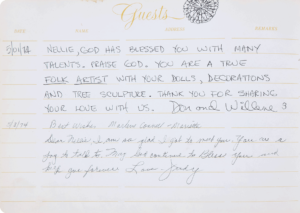 Guests
NELLIE, GOD HAS BLESSED YOU WITH MANY
TALENTS. PRAISE GOD. YOU ARE A TRUE
FOLK ARTIST WITH YOUR DOLLS, DECORATIONS
AND TREE SCULPTURE. THANK YOU FOR SHARING
YOUR LOVE WITH US. Don and Willene
Best Wishes
I am so glad I got to meet you. You are a
joy to talk to. May God continue to Bless you and
Love, Judy